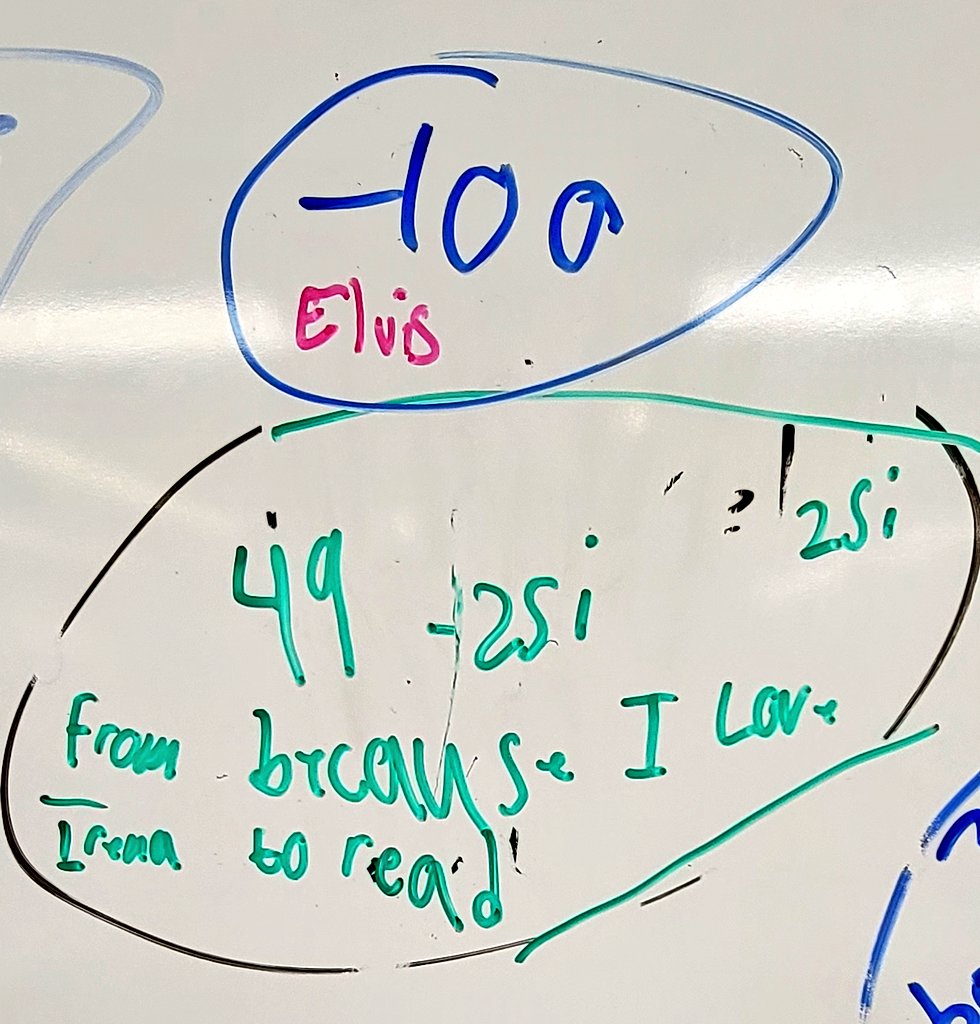 -100
Elvis
25i
49 -25i
From because I Love
Irena to read